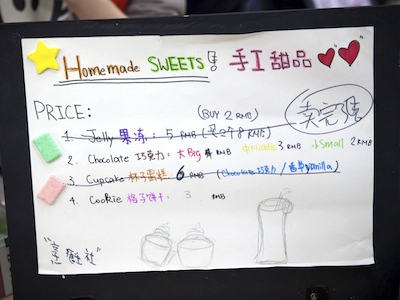 Homemade SWEETS! 手工甜品
PRICE:
(BUY 2 RMB)
卖完啦
1. Jelly 果冻: 5 RMB (买2个8 RMB)
2. Chocolate 巧克力: 大Big 4 RMB 中Middle 3 RMB 小Small 2 RMB
3. Cupcake 杯子蛋糕 6 RMB (Chocolate巧克力/香草Vanilla)
4. Cookie 格子饼干: 3 RMB